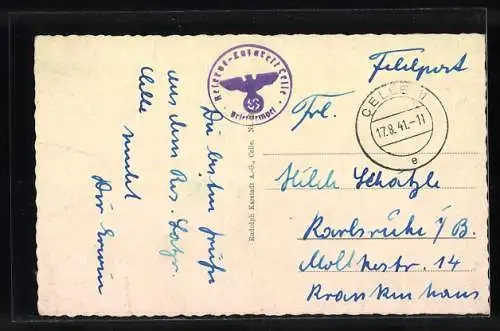 Die besten Grüße
aus dem Res. Lazr.
Celle sendet
Dir Erwin
Reserve-Lazarett Celle
Briefstempel
Rudolph Karstadt A.-G., Celle.
Feldpost
CELLE II
17.8.41.-11
e
Frl.
Hilde Schätzle
Karlsruhe i/B.
Moltkestr. 14
Krankenhaus